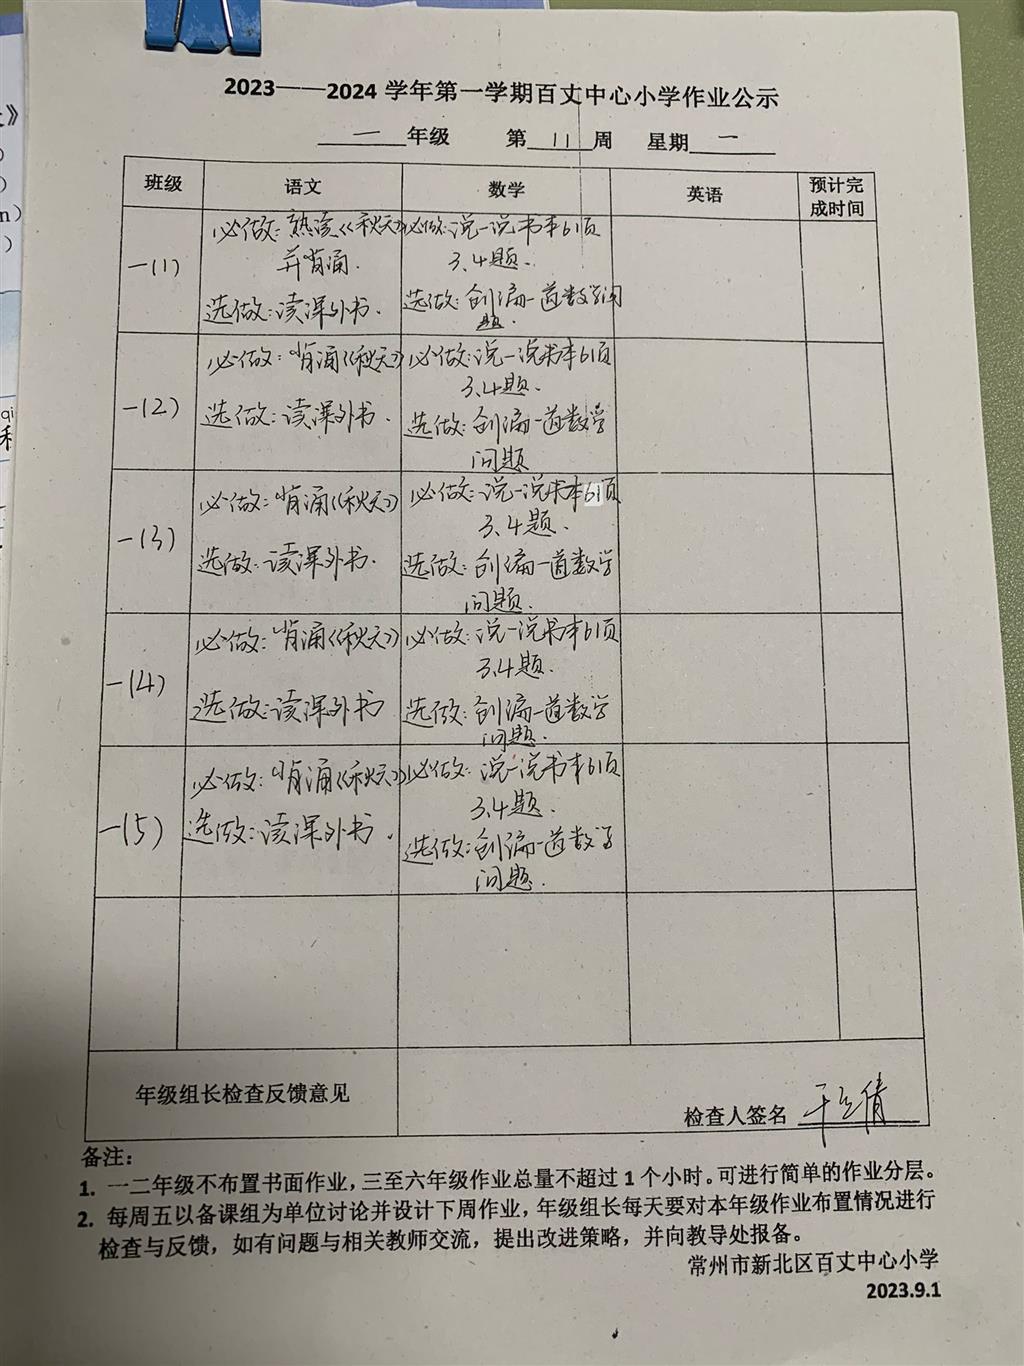 2023——2024 学年第一学期百丈中心小学作业公示
一 年级 第 11 周 星期 一
班级 语文 数学 英语 预计完成时间
一(1)
必做:熟读《秋天》
并背诵.
选做:读课外书.
必做:说一说书本61页
3.4题.
选做:创编一道数学问
题.
一(2)
必做:背诵《秋天》
选做:读课外书.
必做:说一说书本61页
3.4题.
选做:创编一道数学
问题
一(3)
必做:背诵《秋天》
选做:读课外书.
必做:说一说书本61页
3.4题.
选做:创编一道数学
问题.
一(4)
必做:背诵《秋天》
选做:读课外书
必做:说一说书本61页
3.4题.
选做:创编一道数学
问题.
一(5)
必做:背诵《秋天》
选做:读课外书.
必做:说一说书本61页
3.4题.
选做:创编一道数学
问题.
年级组长检查反馈意见
检查人签名
备注:
1. 一二年级不布置书面作业,三至六年级作业总量不超过 1 个小时。可进行简单的作业分层。
2. 每周五以备课组为单位讨论并设计下周作业,年级组长每天要对本年级作业布置情况进行
检查与反馈,如有问题与相关教师交流,提出改进策略,并向教导处报备。
常州市新北区百丈中心小学
2023.9.1